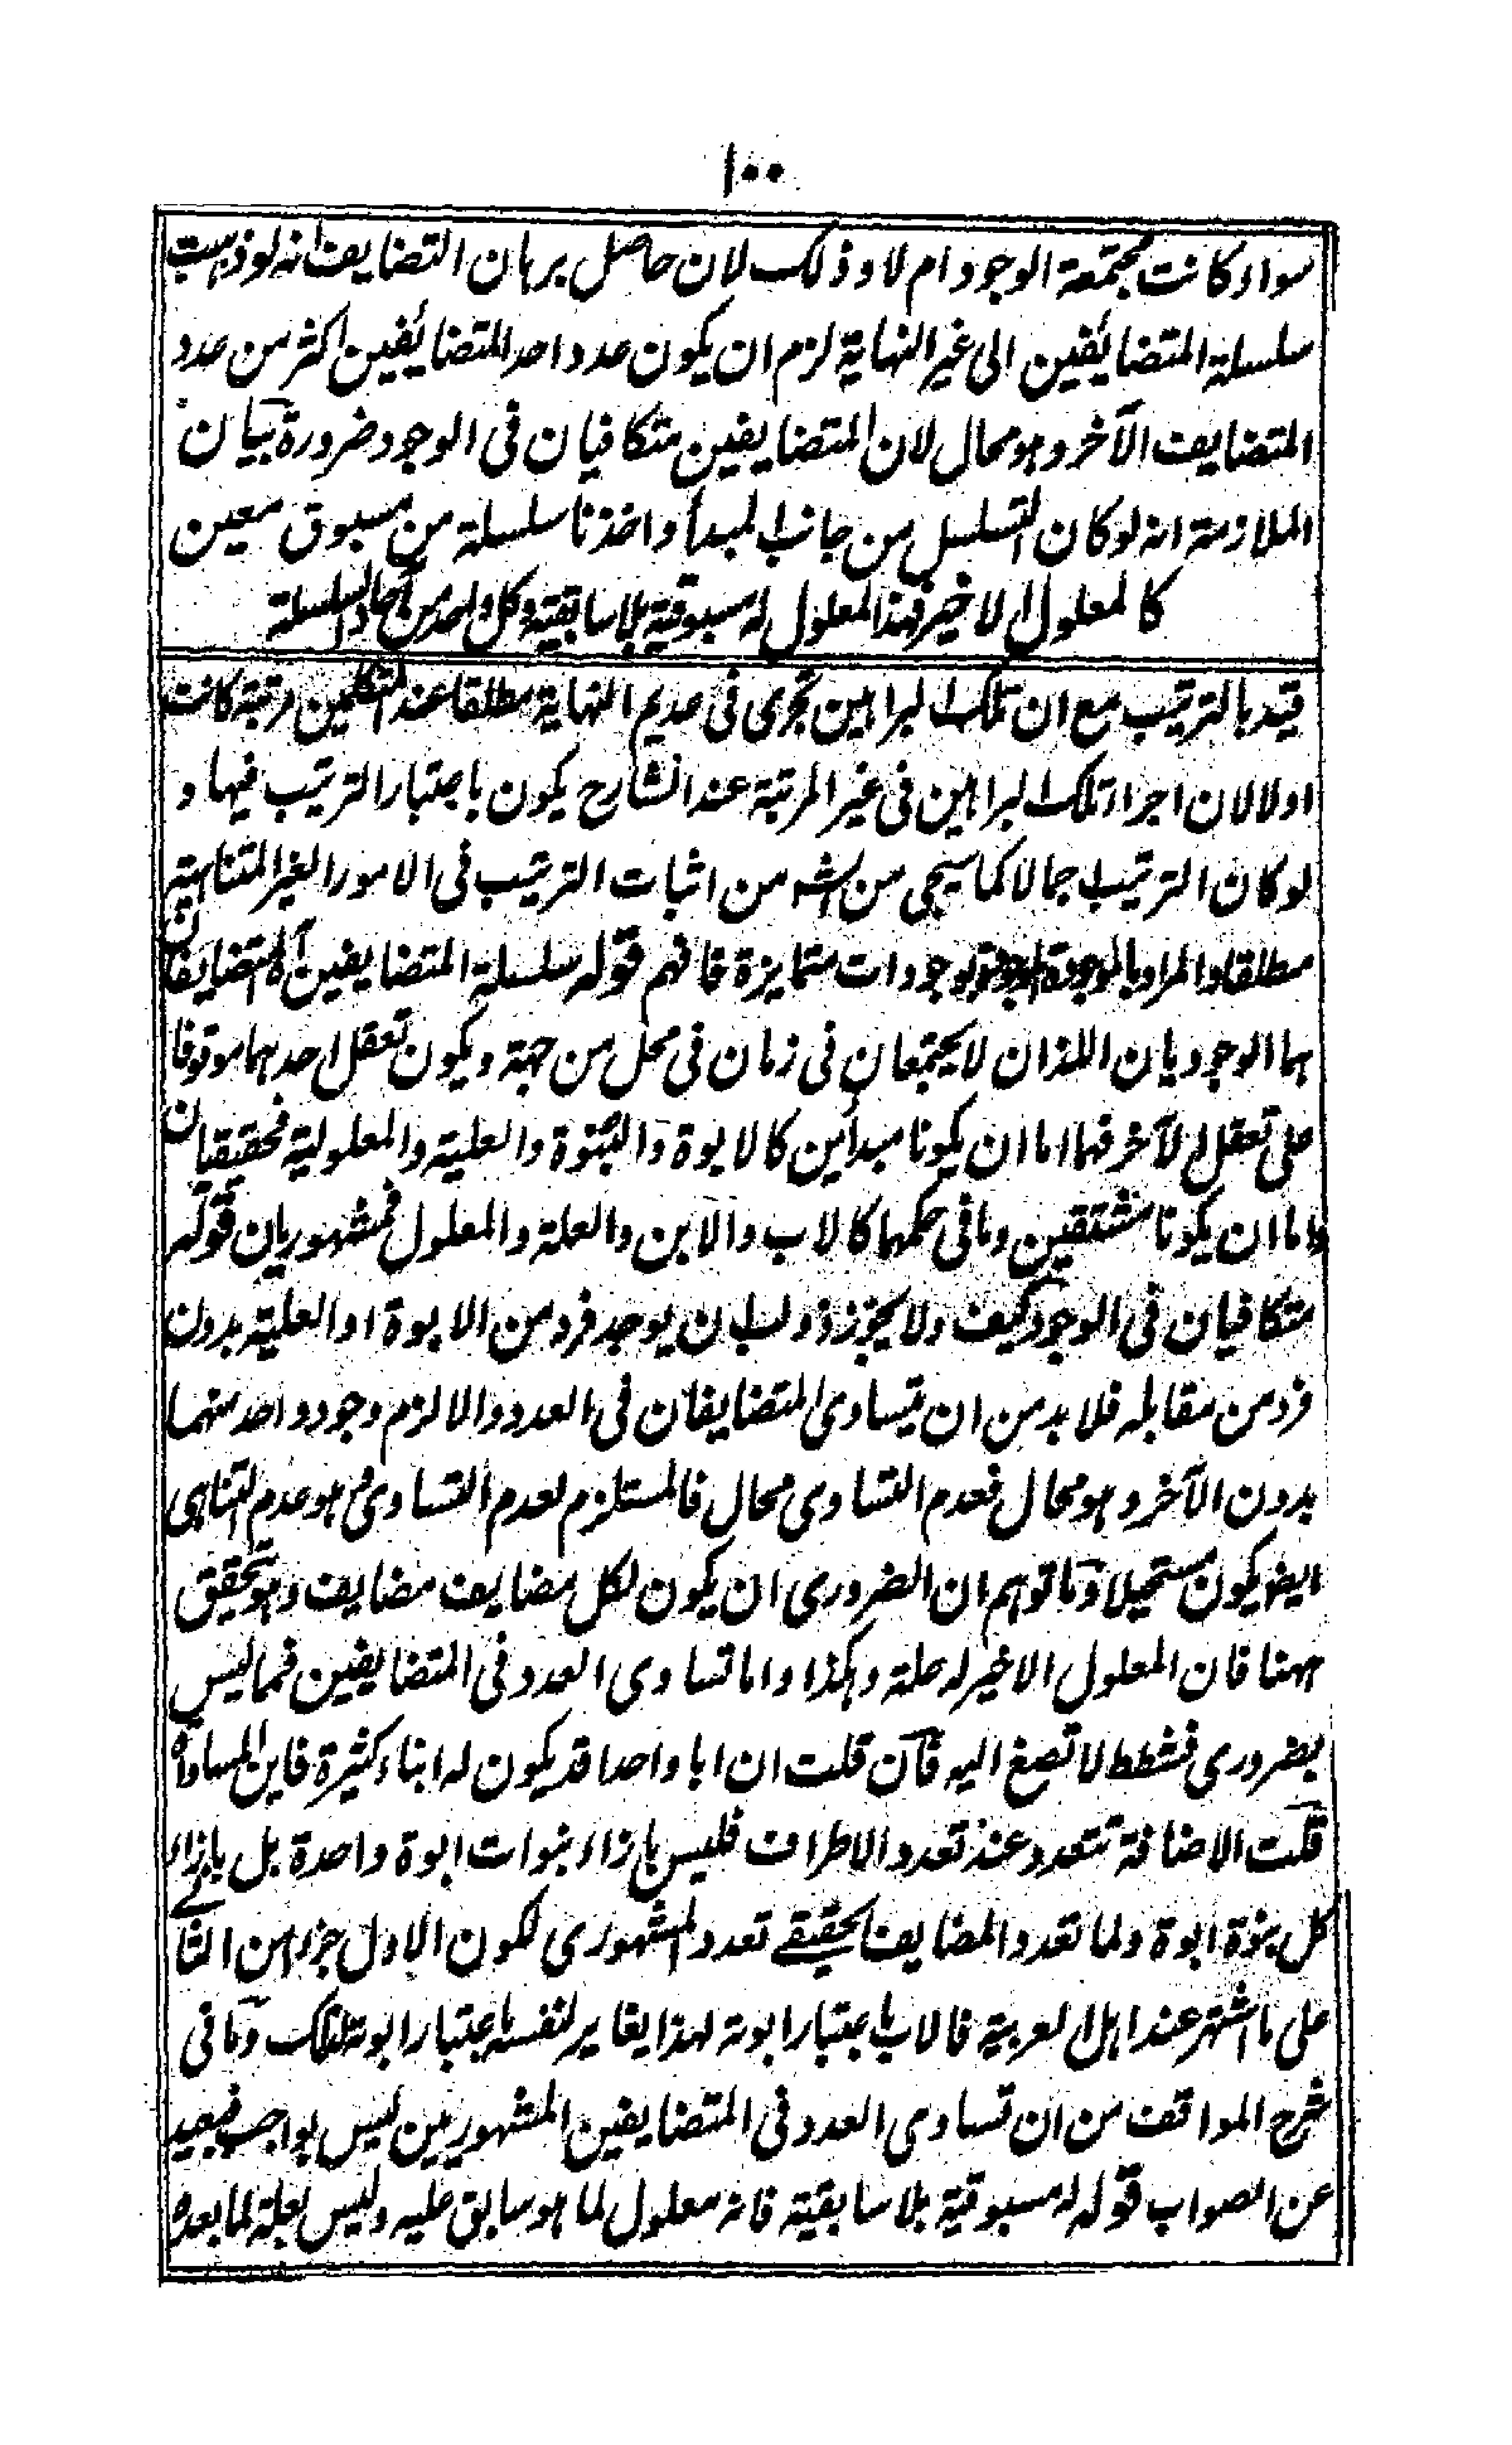 ١٠٠
سواء كانت مجتمعة الوجود ام لا وذلك لان حاصل برهان التضايف انه لو ذهبت
سلسلة المتضايفين الى غير النهاية لزم ان يكون عدد احد المتضايفين اكثر من عدد
المتضايف الآخر وهو محال لان المتضايفين متكافيان فى الوجود ضرورة بيان
الملازمة انه لو كان التسلسل من جانب المبدأ واخذنا سلسلة من مسبوق معين
كالمعلول الاخير فهذا المعلول له مسبوقية بلا سابقية وكل واحد من آحاد السلسلة
قيد بالترتيب مع ان تلك البراهين تجرى فى عديم النهاية مطلقا عند المتكلمين مرتبة كانت
اولا لان اجراء تلك البراهين فى غير المرتبة عند الشارح يكون باعتبار الترتيب فيها و
لو كان الترتيب اجمالا كما سيجى من الش من اثبات الترتيب فى الامور الغير المتناهية
مطلقا والمراد بالموجودة الموجودة بوجودات متمايزة فافهم قوله سلسلة المتضايفين آه المتضايفان
هما الوجوديان اللذان لا يجتمعان فى زمان فى محل من جهة ويكون تعقل احدهما موقوفا
على تعقل الآخر فهما اما ان يكونا مبدأين كالابوة والبنوة والعلية والمعلولية فحقيقيان
واما ان يكونا مشتقين وما فى حكمهما كالاب والابن والعلة والمعلول فمشهوريان قوله
متكافيان فى الوجود كيف ولا يجوز ذو لب ان يوجد فرد من الابوة او العلية بدون
فرد من مقابله فلا بد من ان يتساوى المتضايفان فى العدد والا لزم وجود واحد منهما
بدون الآخر وهو محال فعدم التساوى محال فالمستلزم لعدم التساوى وهو عدم التناهى
ايضا يكون مستحيلا وما توهم ان الضرورى ان يكون لكل مضايف مضايف وهو تحقيق
ههنا فان المعلول الاخير له علة وهكذا واما تساوى العدد فى المتضايفين فمما ليس
بضرورى فشطط لا تصغ اليه فان قلت ان ابا واحدا قد يكون له ابناء كثيرة فاين المساواة
قلت الاضافة تتعدد عند تعدد الاطراف فليس بازاء بنوات ابوة واحدة بل بازاء
كل بنوة ابوة ولما تعدد المضايف الحقيقے تعدد المشهورى لكون الاول جزءا من الثانے
على ما اشتهر عند اهل العربية فالاب باعتبار ابوته لهذا يغاير لنفسه باعتبار ابوته لذلك وما فى
شرح المواقف من ان تساوى العدد فى المتضايفين المشهوريين ليس بواجب فبعيد
عن الصواب قوله له مسبوقية بلا سابقية فانه معلول لما هو سابق عليه وليس بعلة لما بعده